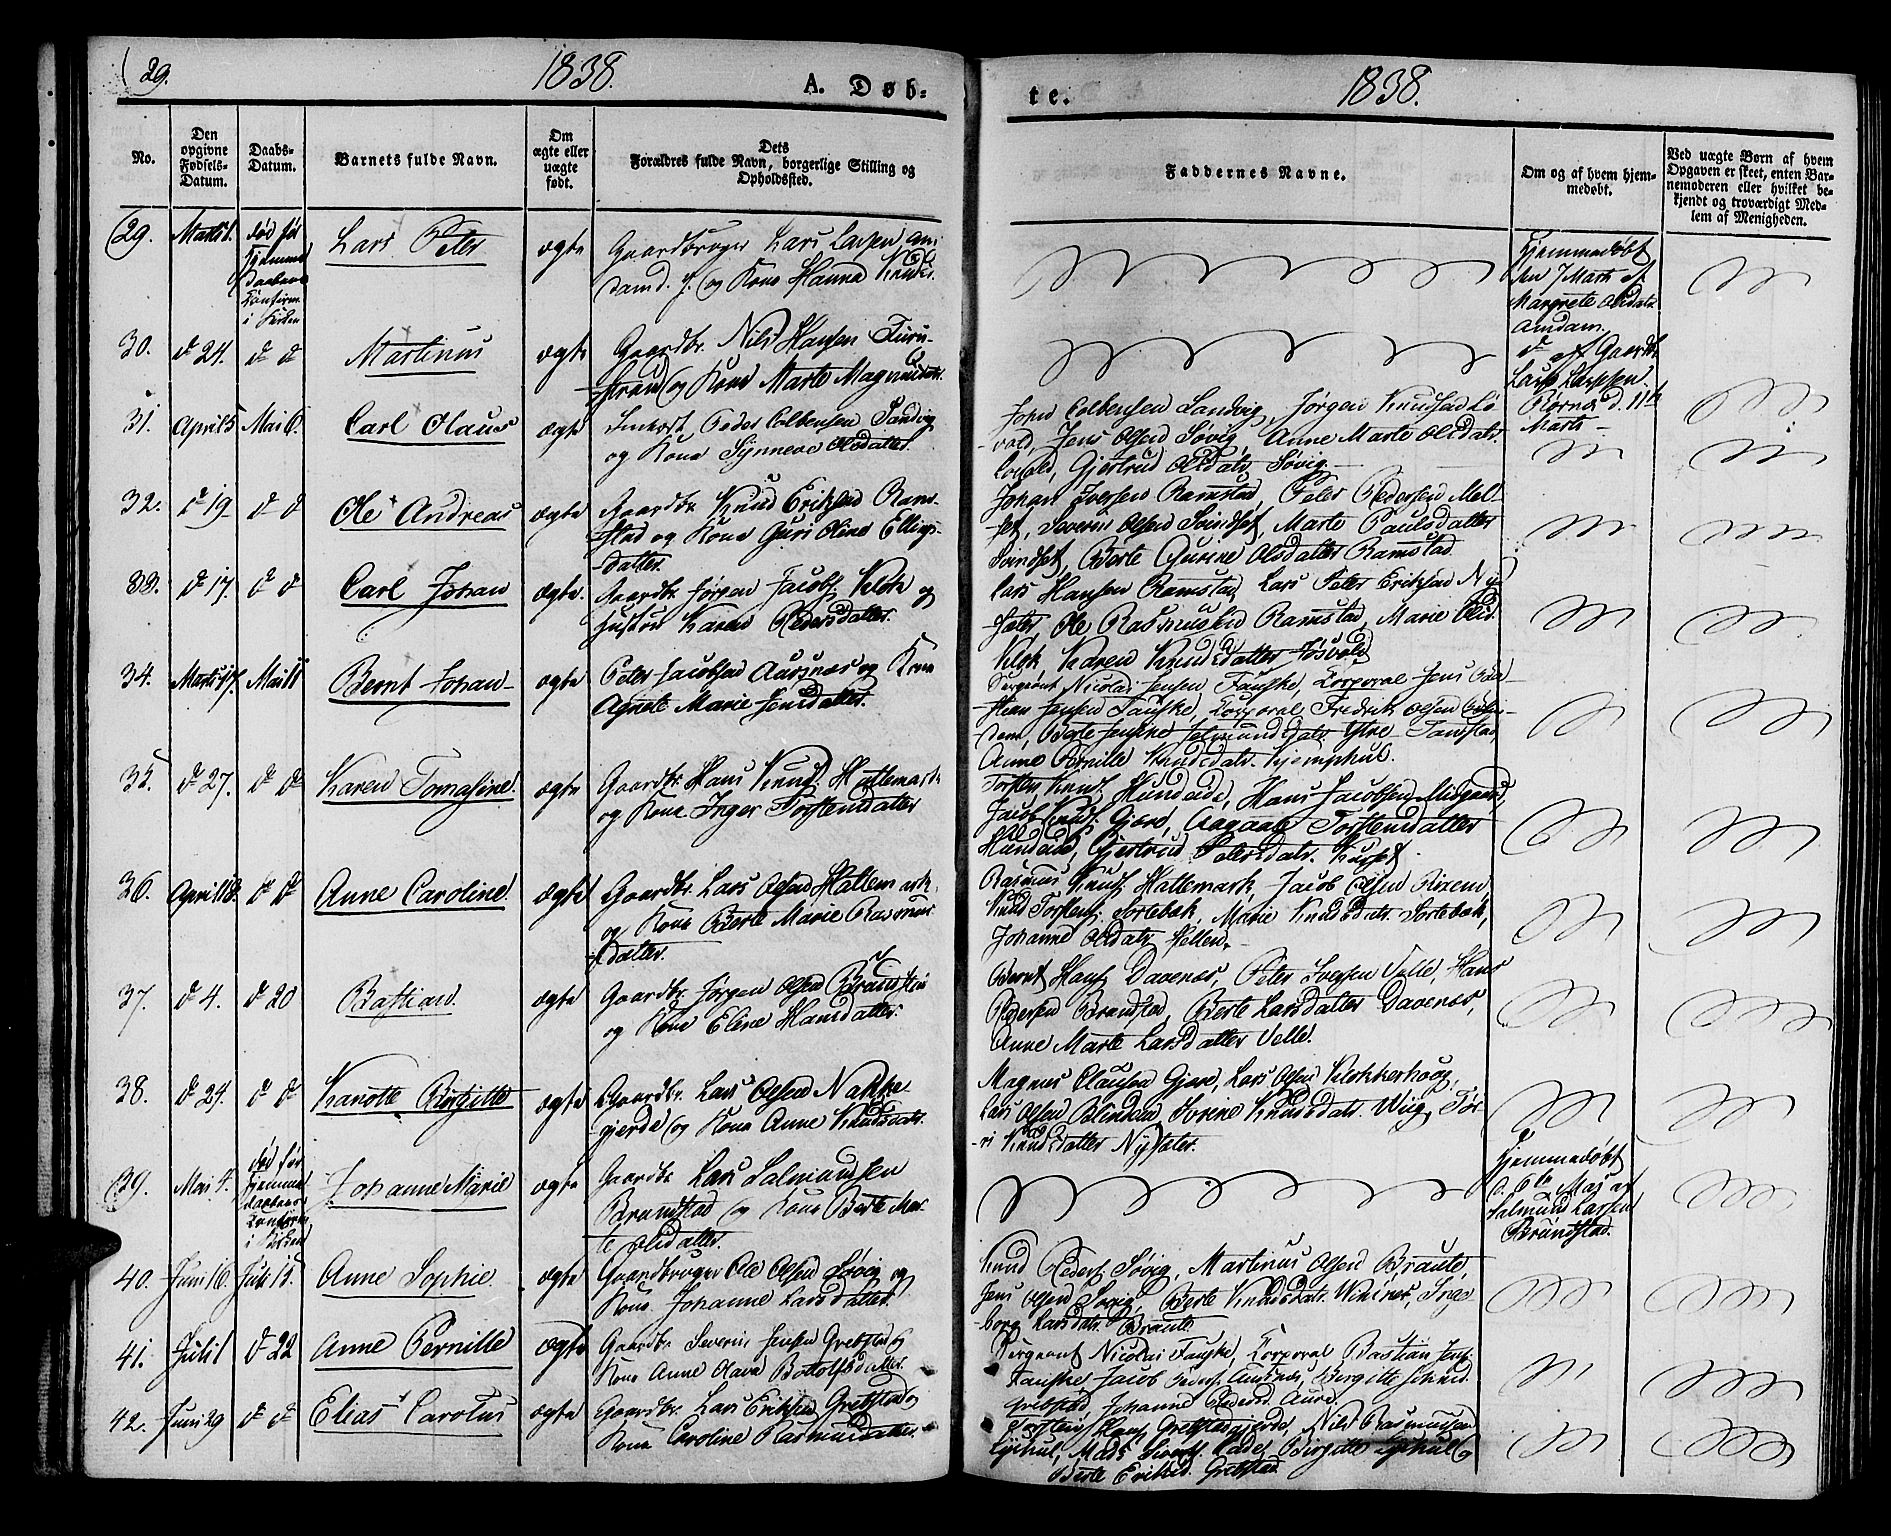 29.
1838.
A. Døb-
te.
1838.
No.
Den opgivne Fødsels-Datum.
Daabs-Datum.
Barnets fulde Navn.
Om ægte eller uægte født.
Dets
Forældres fulde Navn, borgerlige Stilling og
Opholdssted.
Faddernes Navne.
Om og af hvem hjem-
medøbt.
Ved uægte Børn af hvem
Opgaven er skeet, enten Bar-
nemoderen eller hvilket be-
kjendt og troværdigt Med-
lem af Menigheden.
29. Marts 1. død før Hjemme Daabens Confirm. i Kirken Lars Peter ægte Gaardbruger Lars Larsen Am-
dam og Kone Hanna Knudsd.
Hjemmedøbt
den 7 Marts af
Margrete Olsdatr
Amdam.
30. d 24. d d Martinus ægte Gaardbr. Nils Hansen Furu-
strand og Kone Marte Magnusdatr.
d af Gaardb.
Lars Larssen
d. 11te
Marts
31. April 5 Mai 6. Carl Olaus ægte Peder Colbensen Sandvig
og Kone Synneve Olsdatter.
John Colbensen Sandvig, Jørgen Knudsen Lø-
vold, Jens Olsen Søvig, Anne Marte Olsdatr
Løvold, Gjertrud Olsdatr Søvig.
32. d 19 d d Ole Andreas ægte Gaardbr. Knud Eriksen Ram-
stad og Kone Guri Oline Ellings-
datter.
Johan Iversen Ramstad, Peter Pedersen Mel-
set, Severin Olsen Svindset, Marte Paulsdatter
Svindset, Berte Gurine Olsdatter Ramstad.
33. d 17. d d Carl Johan ægte. Gaardbr. Jørgen Jacobs. Klok og
Hustru Karen Pedersdatter.
Lars Hansen Ramstad, Lars Peter Eriksen Ny-
sæter, Ole Rasmussen Ramstad, Marie Olsd.
Klok, Karen Knudsdatter
34. Marts 17. Mai 11 Bernt Johan ægte Peter Jacobsen Aursnes og Kone
Agnete Marie Jensdatter.
Sergeant Nicolai Jensen Fauske, Corporal Jens
Jensen Fauske, Corporal Fredrik Olsen
Berte Jensine Salmundsdatr. Ytre
Anne Pernille Knudsdatr. Kjemphul.
35. d 27. d d Karen Tomasine. ægte Gaardbr. Hans Knuds. Hattemark
og Kone Inger Torstensdatter
Torsten Knuts. Hundeide, Hans Jacobsen Midgaard,
Jacob Knuds. Gjære, Aagaate Torstensdatter
Hundeide, Gjertrud Petersdatr.
36. April 18. d d Anne Caroline. ægte Gaardbr. Lars Olsen Hattemark
og Kone Berte Marie Rasmus-
datter.
Rasmus Knuts. Hattemark, Jacob Olsen
Knud Torstens. Sortebæk, Marie Knudsdatr. Sortebæk,
Johanne Olsdatr Hellen.
37. d 4. d 20 Bastian. ægte Gaardbr. Jørgen Olsen
og Kone Eline Hansdatter.
Bernt Hans. Davenæs, Peter Iversen Velle, Hans
Pedersen Brandstad, Berte Larsdatter Davenæs,
Anne Marte Larsdatter Velle.
38. d 24. d d Kanotte Birgitte ægte Gaardbr. Lars Olsen Nakke-
gjerde og Kone Anne Knudsdatr.
Magnus Clausen Gjære, Lars Olsen Klokkerhoug,
Lars Olsen Blinden Sevrine Knudsdatr. Wiig, Tør-
ri Knudsdatter Nysæter.
39. Mai 4. død før Hjemme daabens Confirm. i Kirken Johanne Marie ægte Gaardbr. Lars Salmundsen
Brandstad og Kone Berte Mar-
te Olsdatter.
Hjemmedøbt
d. 6te Mai af
Salmund Larsen
Brandstad.
40. Juni 16. Juli 15. Anne Sophie ægte Gaardbruger Ole Olsen Søvig og
Kone Johanne Larsdatter.
Knud Peders. Søvig, Martinus Olsen Braute
Jens Olsen Søvig, Berte Knudsdatr. Inge-
borg Larsdatr. Braute.
41. Juli 1 d 22 Anne Pernille ægte Gaardbr. Severin Jensen Grebstad og
Kone Anne Olava Bottolfsdatter.
Sergeant Nicolai Fauske, Corporal Bastian Jens.
Fauske Jacob Aursnes, Birgitte
Grebstad Johanne Pedersd. Aure.
42. Juni 29 d d Elias Carolus ægte Gaardbr. Lars Eriksen Grebstad og
Kone Caroline Rasmusdatter.
Torsten Hans. Grebstadgjerde, Nils Rasmussen
Lyshul, Mads Birgitte Lyshul og
Berte Eriksd. Grebstad.